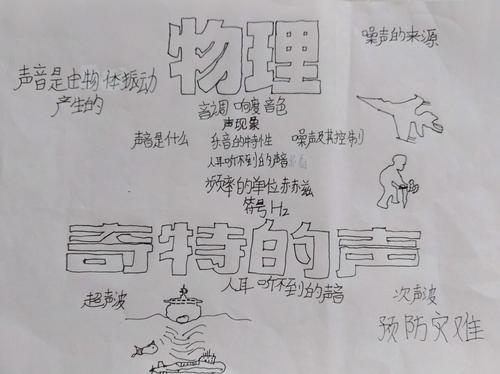 物理
噪声的来源
声音是由物体振动
产生的
音调 响度 音色
声现象
声音是什么 乐音的特性 噪声及其控制
人耳听不到的声音
频率的单位赫兹
符号Hz
奇特的声
超声波
人耳听不到的声音
次声波
预防灾难